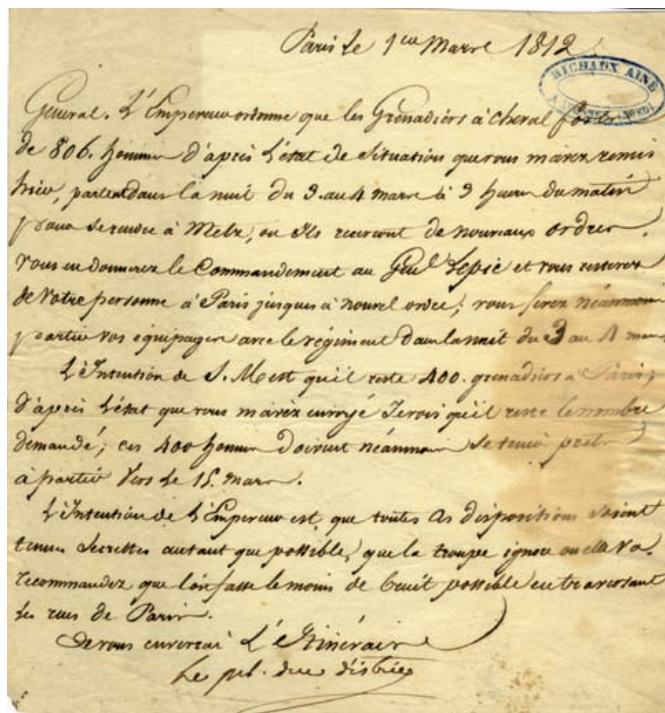 Paris le 1er Marre 1812
RICHAUX AINÉ
Général. L'Empereur ordonne que les Grenadiers à cheval forts
de 806. hommes d'après l'état de situation que vous m'avez remis
hier, partent dans la nuit du 3. au 4 marre à 3 heures du matin
pour se rendre à Metz, ou ils recevront de nouveaux ordres.
Vous en donnerez le Commandement au Genl Lepic et vous resterez
de votre personne à Paris jusques à nouvel ordre; vous ferez néanmoins
partir vos équipages avec le régiment dans la nuit du 3 au 4 mars
L'Intention de S. M est qu'il reste 400. grenadiers à Paris;
d'après l'état que vous m'avez envoyé Je vois qu'il reste le nombre
demandé; ces 400 hommes doivent néanmoins se tenir prets
à partir vers le 15. mars.
L'Intention de L'Empereur est, que toutes ces dispositions soient
tenues secrettes autant que possible, que la troupe ignore ou elle va.
recommandez que l'on fasse le moins de bruit possible en traversant
les rues de Paris.
Je vous enverrai L'Itinéraire
Le duc d'istrie